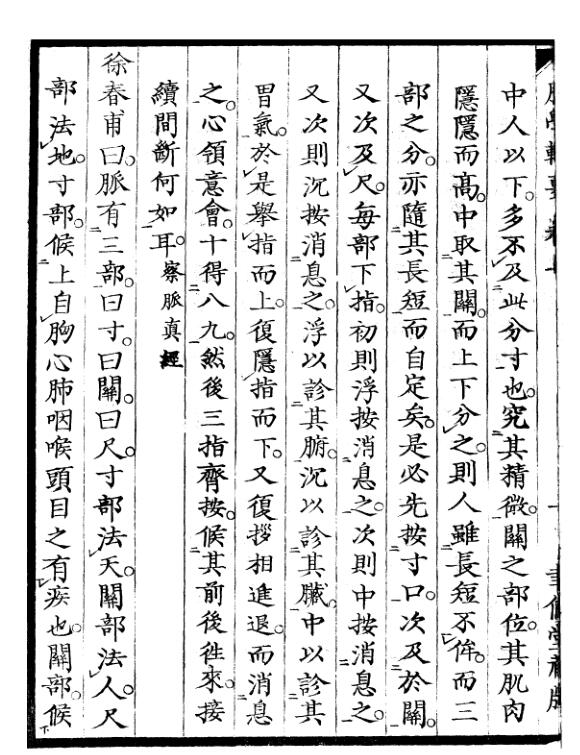 中人以下。多不及此分寸也。究其精微。關之部位。其肌肉
隱隱而高。中取其關。而上下分之。則人雖長短不侔。而三
部之分。亦隨其長短而自定矣。是必先按寸口。次及於關。
又次及尺。每部下指。初則浮按消息之。次則中按消息之。
又次則沉按消息之。浮以診其腑。沉以診其臟。中以診其
胃氣。於是擧指而上。復隱指而下。又復拶相進退。而消息
之。心領意會。十得八九。然後三指齊按。候其前後徃來。接
續間斷何如耳。察脈眞經
徐春甫曰。脈有三部。曰寸。曰關。曰尺。寸部法天。關部法人。尺
部法地。寸部。候上自胸心肺咽喉頭目之有疾也。關部。候